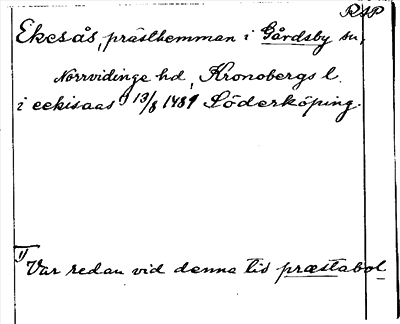 RAP
Ekesås, prästhemman i Gårdsby sn,
Norrvidinge hd, Kronobergs l.
i eekisaas 1) 13/8 1489 Söderköping.
1) Var redan vid denna tid præstabol